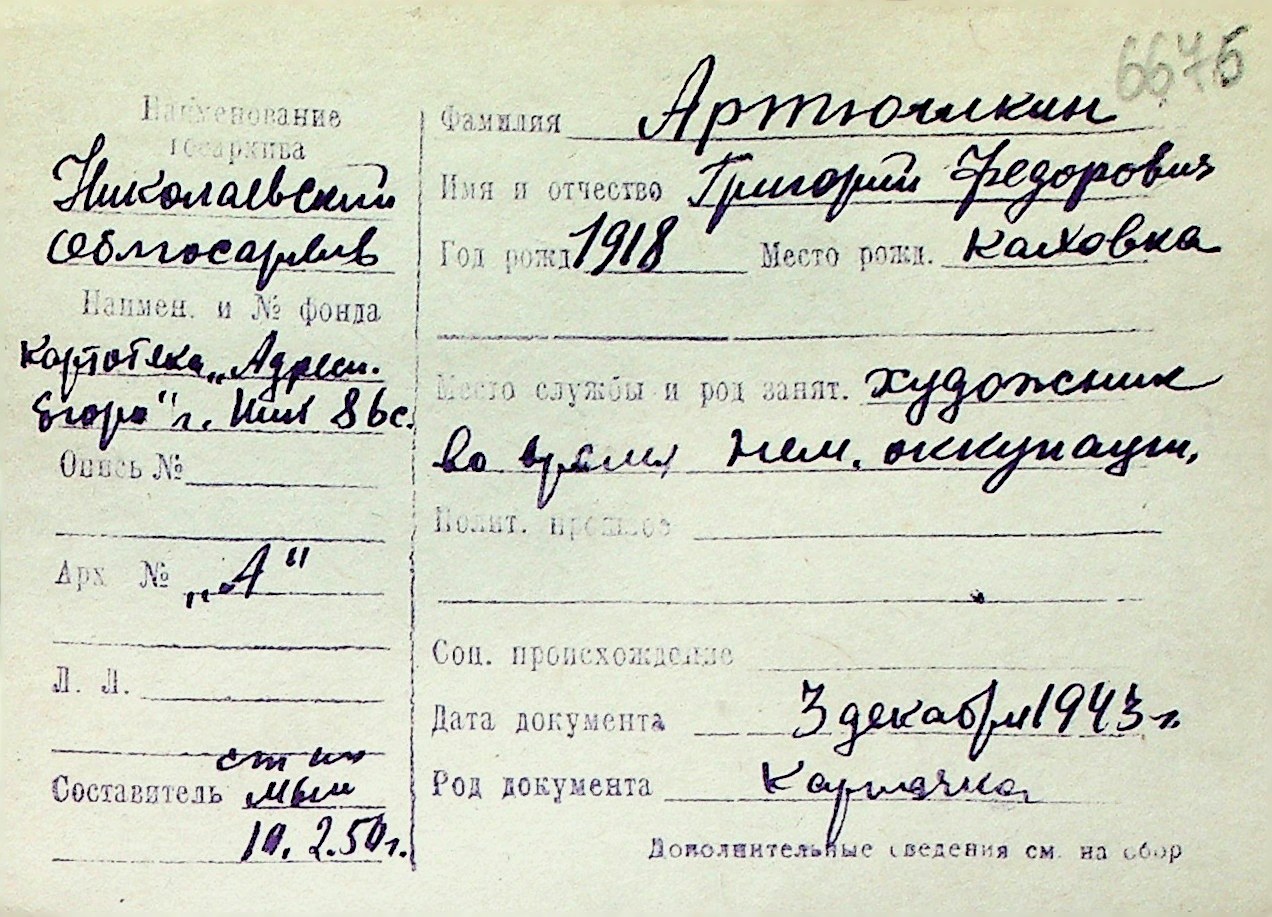 6676
Наименование
Госархива
Николаевский
Облгосархив
Наимен. и № фонда
Картотека „Адресн.
бюро" г. Ник
Опись №
Арх № „А"
Л. Л.
Составитель
10. 2. 50 г.
Фамилия Артюшкин
Имя и отчество Григорий Федорович
Год рожд 1918 Место рожд. Каховка
Место службы и род занят. художник
во время нем. оккупации.
Полит. прошлое
Соц. происхождение
Дата документа 3 декабря 1943 г.
Род документа Карточка
Дополнительные сведения см. на обор